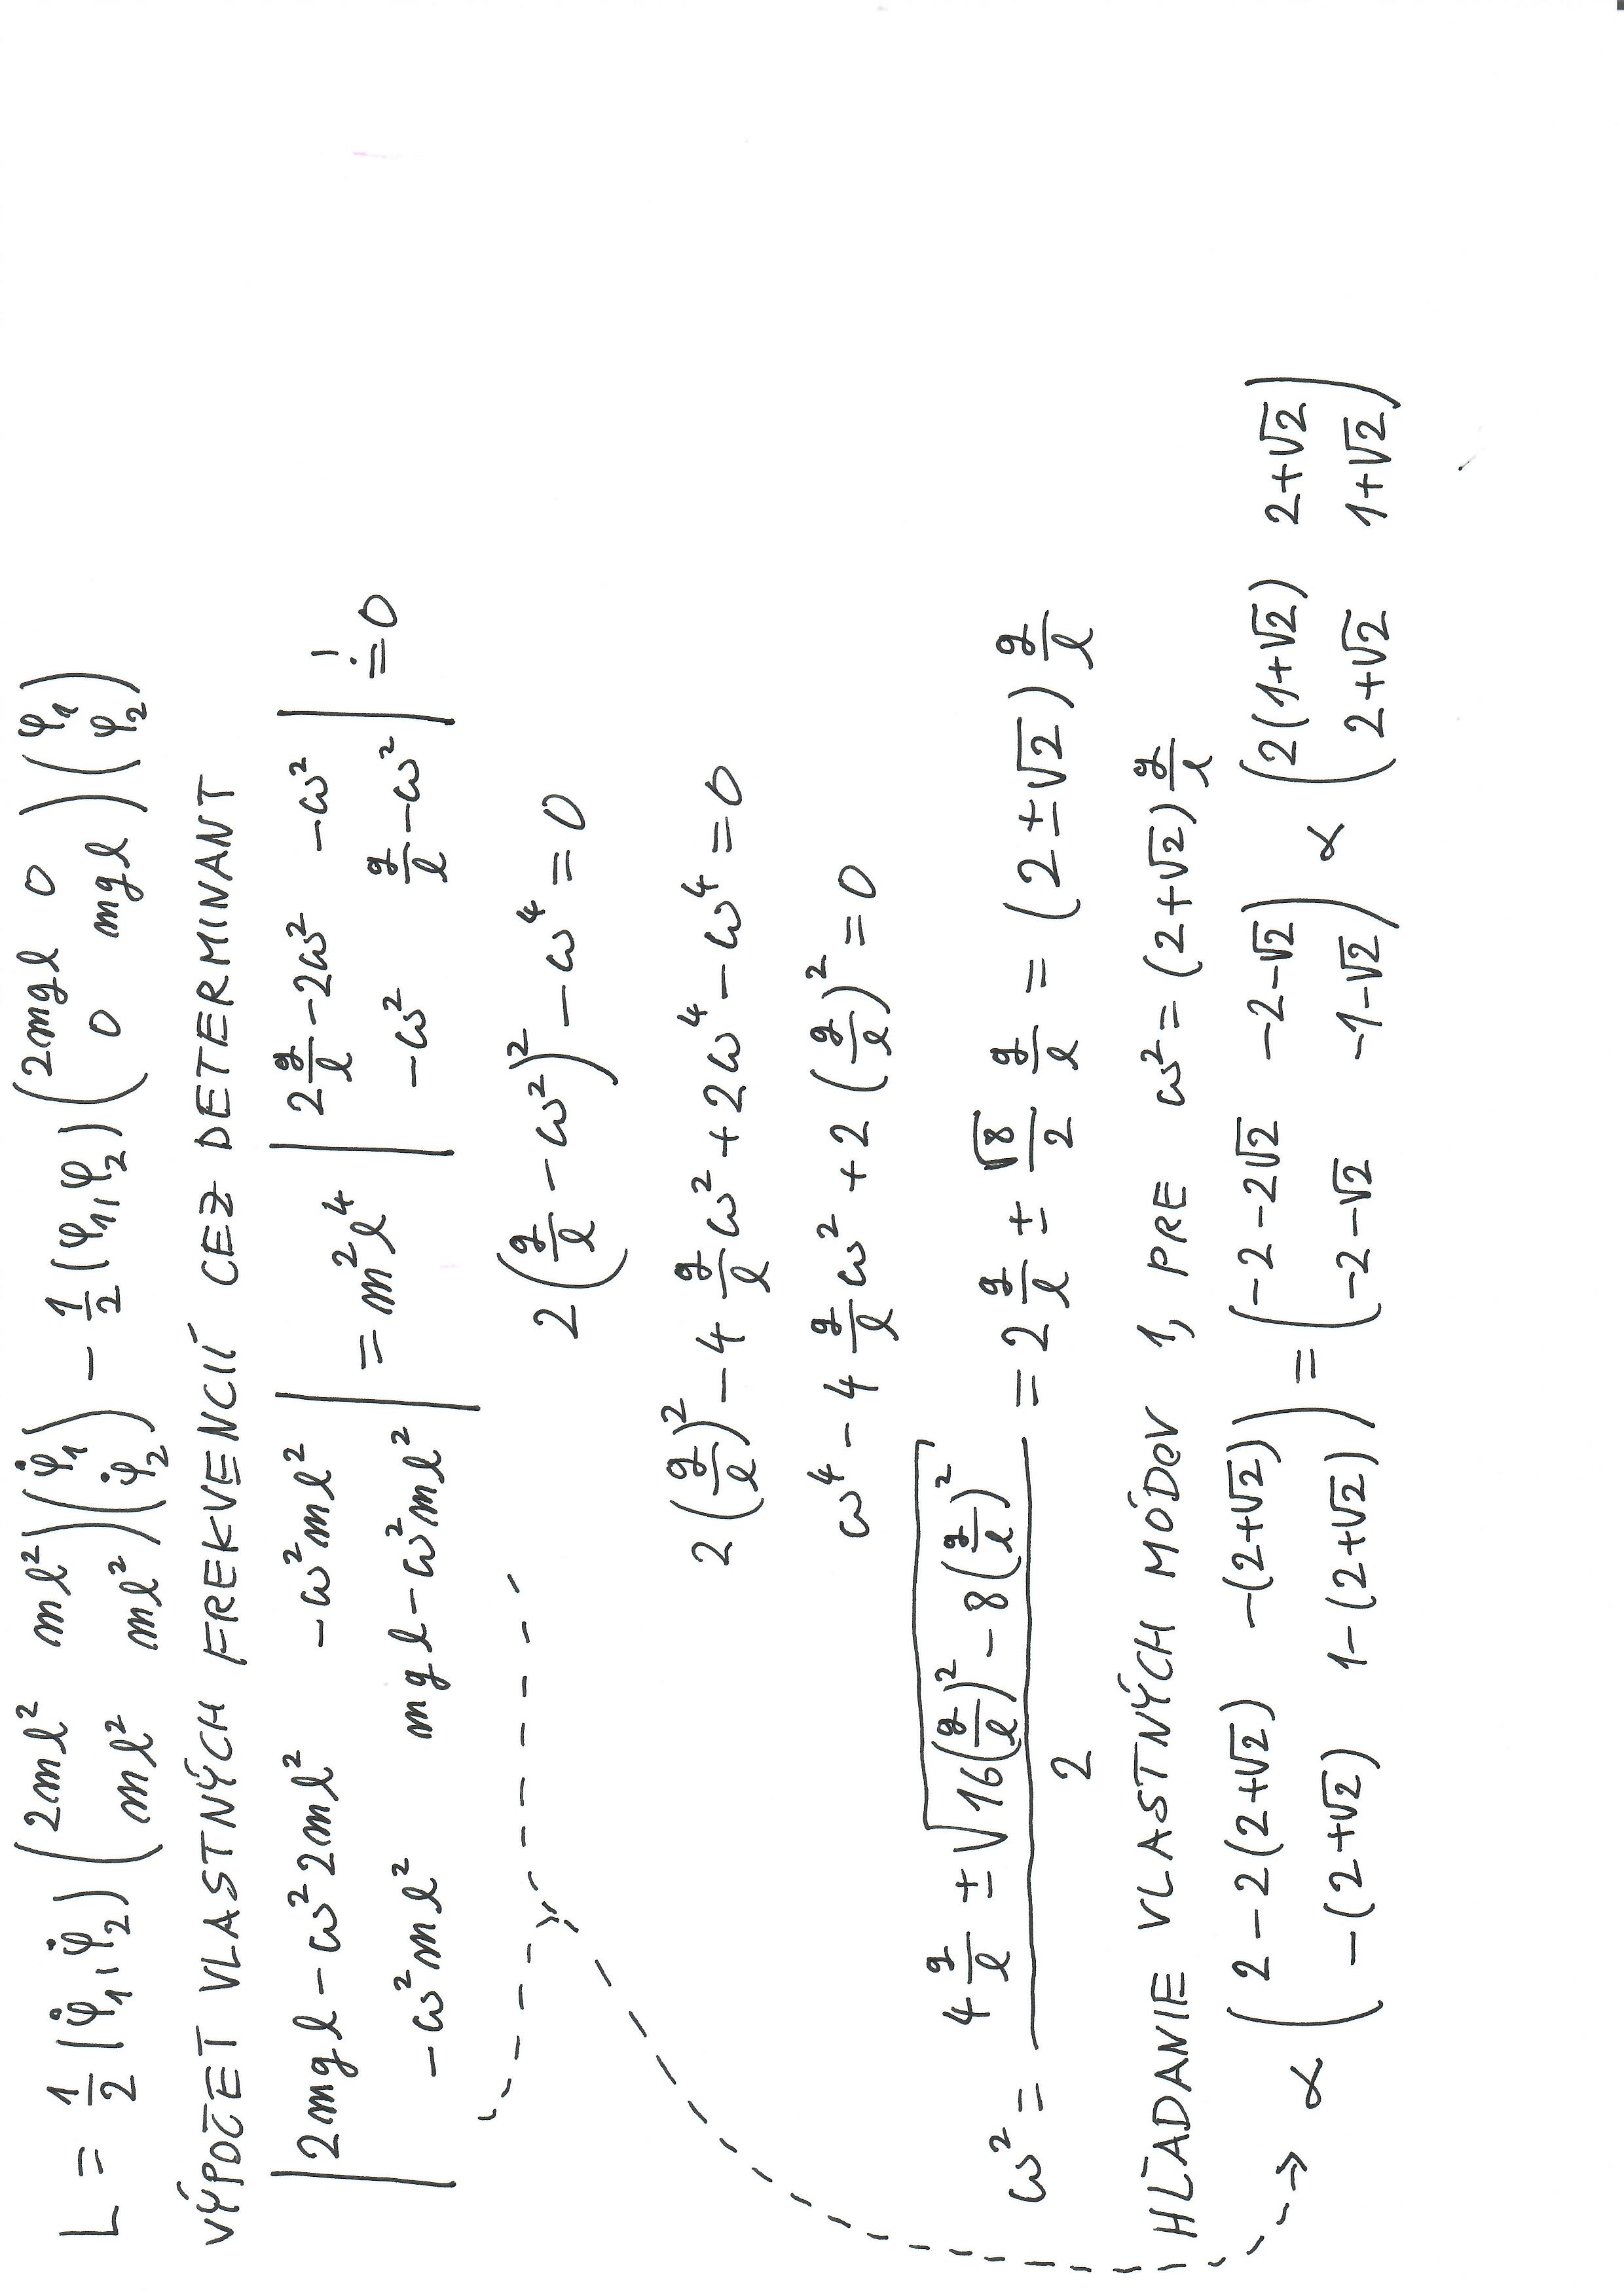 L = \frac{1}{2} (\dot{φ}_1, \dot{φ}_2) \begin{pmatrix} 2ml^2 & ml^2 \\ ml^2 & ml^2 \end{pmatrix} \begin{pmatrix} \dot{φ}_1 \\ \dot{φ}_2 \end{pmatrix} - \frac{1}{2} (φ_1, φ_2) \begin{pmatrix} 2mgl & 0 \\ 0 & mgl \end{pmatrix} \begin{pmatrix} φ_1 \\ φ_2 \end{pmatrix}
VÝPOČET VLASTNÝCH FREKVENCIÍ CEZ DETERMINANT
\begin{vmatrix} 2mgl - ω^2 2ml^2 & -ω^2 ml^2 \\ -ω^2 ml^2 & mgl - ω^2 ml^2 \end{vmatrix} = m^2 l^4 \begin{vmatrix} 2\frac{g}{l} - 2ω^2 & -ω^2 \\ -ω^2 & \frac{g}{l} - ω^2 \end{vmatrix} \overset{!}{=} 0
2(\frac{g}{l} - ω^2)^2 - ω^4 = 0
2(\frac{g}{l})^2 - 4\frac{g}{l}ω^2 + 2ω^4 - ω^4 = 0
ω^4 - 4\frac{g}{l}ω^2 + 2(\frac{g}{l})^2 = 0
ω^2 = \frac{4\frac{g}{l} ± \sqrt{16(\frac{g}{l})^2 - 8(\frac{g}{l})^2}}{2} = 2\frac{g}{l} ± \frac{\sqrt{8}}{2} \frac{g}{l} = (2 ± \sqrt{2}) \frac{g}{l}
HĽADANIE VLASTNÝCH MÓDOV 1, PRE ω^2 = (2+\sqrt{2})\frac{g}{l}
∝ \begin{pmatrix} 2 - 2(2+\sqrt{2}) & -(2+\sqrt{2}) \\ -(2+\sqrt{2}) & 1-(2+\sqrt{2}) \end{pmatrix} = \begin{pmatrix} -2-2\sqrt{2} & -2-\sqrt{2} \\ -2-\sqrt{2} & -1-\sqrt{2} \end{pmatrix} ∝ \begin{pmatrix} 2(1+\sqrt{2}) & 2+\sqrt{2} \\ 2+\sqrt{2} & 1+\sqrt{2} \end{pmatrix}